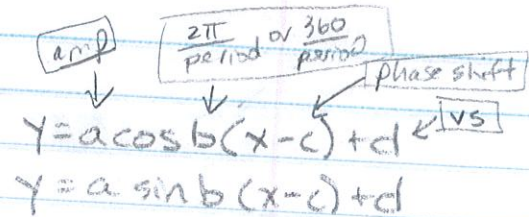 amp
2π/period or 360/period
phase shift
y=acosb(x-c)+d
vs
y=a sinb(x-c)+d